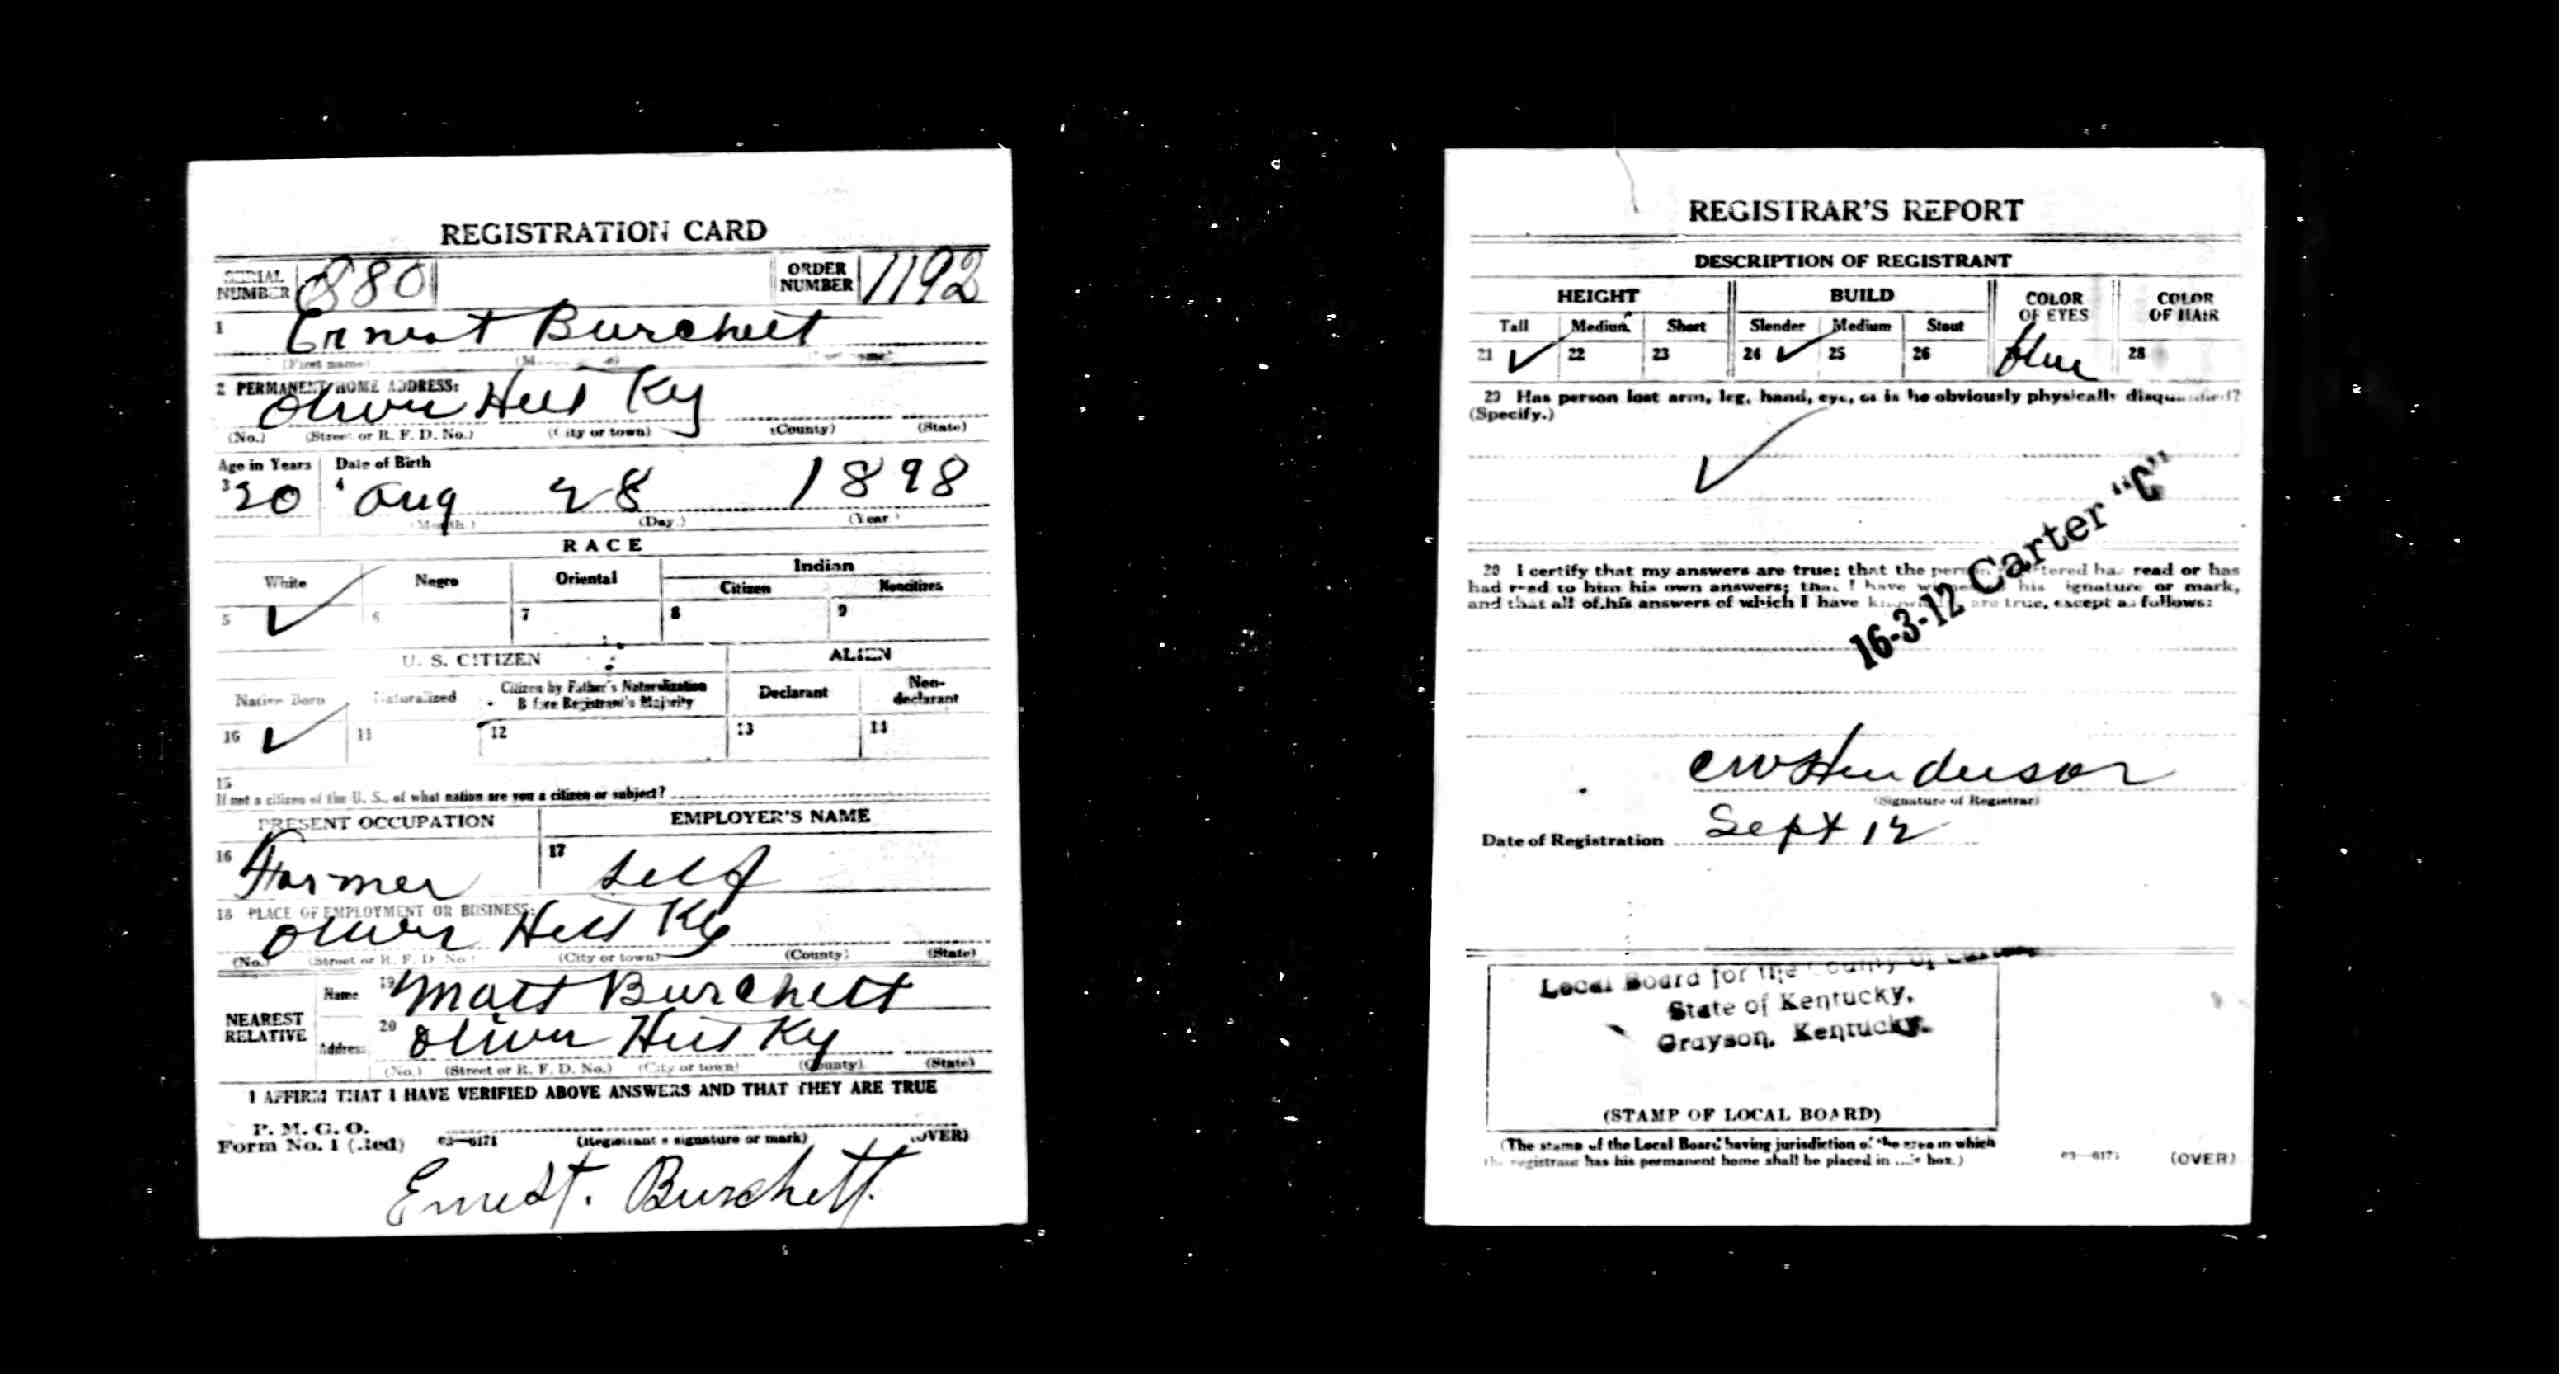 REGISTRATION CARD
SERIAL NUMBER 880 ORDER NUMBER 1192
1 Ernest Burchett
(First name)
2 PERMANENT HOME ADDRESS:
Olive Hill Ky
(No.) (Street or R. F. D. No.) (City or town) (County) (State)
Age in Years Date of Birth
3 20 4 Aug 28 1898
(Month.) (Day.) (Year.)
RACE
White Negro Oriental Indian
Citizen Noncitizen
5 ✓ 6 7 8 9
U. S. CITIZEN ALIEN
Native Born Naturalized Citizen by Father's Naturalization Before Registrant's Majority Declarant Non-declarant
10 ✓ 11 12 13 14
15
If not a citizen of the U. S., of what nation are you a citizen or subject?
PRESENT OCCUPATION EMPLOYER'S NAME
16 Farmer 17 Self
18 PLACE OF EMPLOYMENT OR BUSINESS:
Olive Hill Ky
(No.) (Street or R. F. D. No.) (City or town) (County) (State)
NEAREST RELATIVE
Name 19 Matt Burchett
Address 20 Olive Hill Ky
(No.) (Street or R. F. D. No.) (City or town) (County) (State)
I AFFIRM THAT I HAVE VERIFIED ABOVE ANSWERS AND THAT THEY ARE TRUE
P. M. G. O.
Form No. 1 (Red) 03—6171 (Registrant's signature or mark) (OVER)
Ernest. Burchett.
REGISTRAR'S REPORT
DESCRIPTION OF REGISTRANT
HEIGHT BUILD COLOR OF EYES COLOR OF HAIR
Tall Medium Short Slender Medium Stout
21 ✓ 22 23 24 ✓ 25 26 blue 28
29 Has person lost arm, leg, hand, eye, or is he obviously physically disqualified?
(Specify.)
✓
30 I certify that my answers are true; that the person registered has read or has
had read to him his own answers; that I have witnessed his signature or mark,
and that all of his answers of which I have knowledge are true, except as follows:
16-3-12 Carter "C"
C W Henderson
(Signature of Registrar)
Date of Registration Sept 12
Local Board for the County of Carter
State of Kentucky,
Grayson, Kentucky.
(STAMP OF LOCAL BOARD)
(The stamp of the Local Board having jurisdiction of the area in which
the registrant has his permanent home shall be placed in this box.)
03—6171 (OVER)